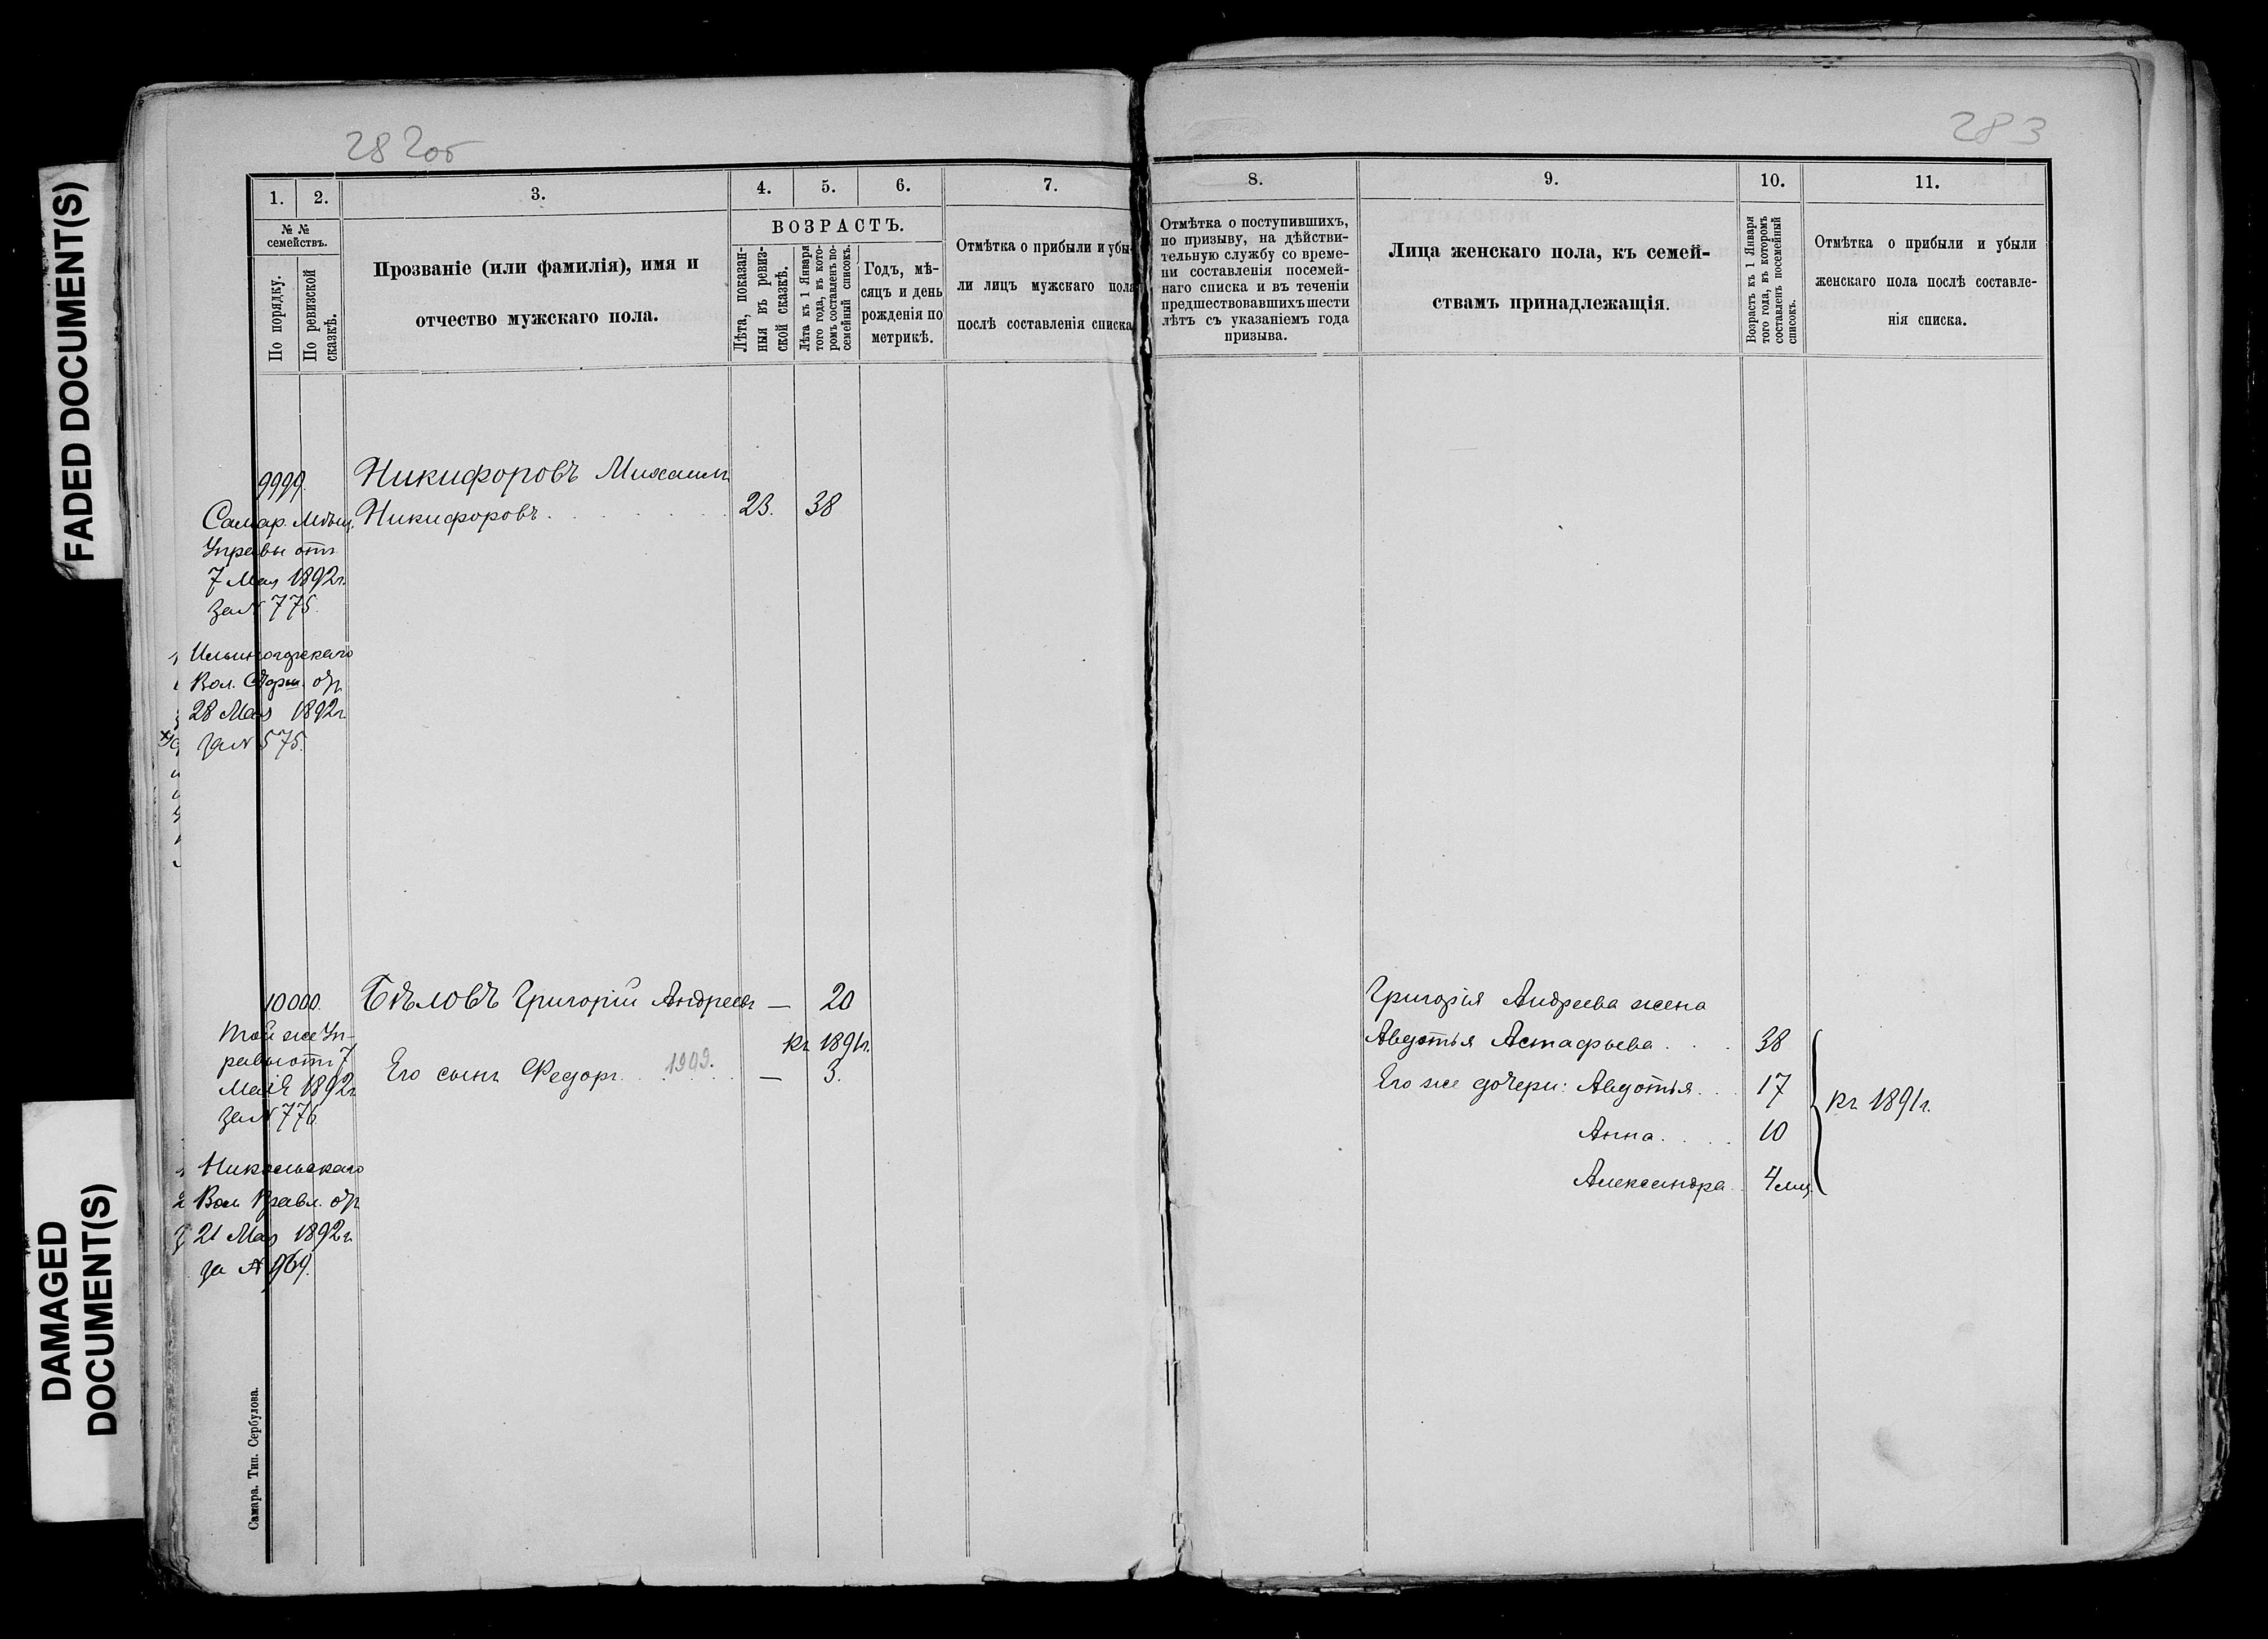 FADED DOCUMENT(S)
DAMAGED
DOCUMENT(S)
282об
1.
2.
3.
4.
5.
6.
7.
№ №
семействъ.
По порядку.
По ревизской
сказкѣ.
Прозваніе (или фамилія), имя и
отчество мужскаго пола.
ВОЗРАСТЪ.
Лѣта, показан-
ныя въ ревиз-
ской сказкѣ.
Лѣта къ 1 Января
того года, въ кото-
ромъ составленъ по-
семейный списокъ.
Годъ, мѣ-
сяцъ и день
рожденія по
метрикѣ.
Отмѣтка о прибыли и убы-
ли лицъ мужскаго пола
послѣ составленія списка
9999.
Никифоровъ Михаилъ
Никифоровъ 23. 38
Самар. Мѣщ.
Управы отъ
7 Мая 1892г.
за № 775.
Вол. Старш. отъ
28 Мая 1892г
за № 575.
10000.
Бѣловъ Григорій Андреевъ — 20
Къ 1891г.
Его сынъ Федоръ 1909. — 3.
Той же Уп-
равы отъ 7
Мая 1892г
за № 776
Никольскаго
Вол. Правл. отъ
21 Мая 1892г
за № 969.
Самара. Тип. Сербулова.
283
8.
9.
10.
11.
Отмѣтка о поступившихъ,
по призыву, на дѣйстви-
тельную службу со време-
ни составленія посемей-
наго списка и въ теченіи
предшествовавшихъ шести
лѣтъ съ указаніемъ года
призыва.
Лица женскаго пола, къ семей-
ствамъ принадлежащія.
Возрастъ къ 1 Января
того года, въ которомъ
составленъ посемейный
списокъ.
Отмѣтка о прибыли и убыли
женскаго пола послѣ составле-
нія списка.
Григорія Андреева жена
Авдотья Астафьева 38
Его же дочери: Авдотья 17
Къ 1891г.
Анна 10
Александра 4 мѣс.